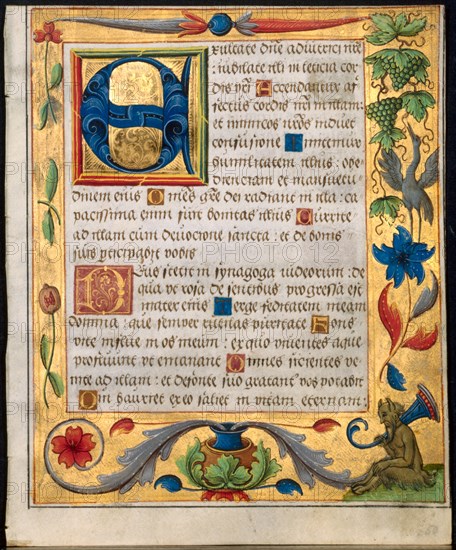 Exultate dn̄e adiutrici n̄re
: iubilate illi in leticia cor
dis nr̄i Accendantur af
fectus cordis nr̄i in illam:
et inimicos n̄ros induet
confusione Imitemur
humilitatem illius: ope
dienciam et mansuetu
dinem eius Omēs gr̄e dei radiant in illa: ca
pacissima enim fuit bonitas illius Currite
ad illam cum devocione sancta: et de bonis
suis participabit vobis
Deus stetit in synagoga iudeorum: de
qua ut rosa de sentibus progressa est
mater eius Terge feditatem meam
domina: que semper rutilas puritate Fons
vite influe in os meum: ex quo viventes aque
profluunt et emanant Omnes sicientes ve
nite ad illam: et de fonte suo gratanter vos potabit
Qui hauserit ex ea saliet in vitam eternam: